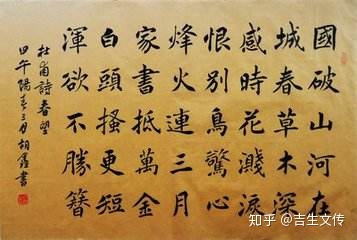 國破山河在
城春草木深
感時花濺淚
恨別鳥驚心
烽火連三月
家書抵萬金
白頭搔更短
渾欲不勝簪
杜甫詩春望
甲午陽春三月胡鑫書
知乎 @吉生文传